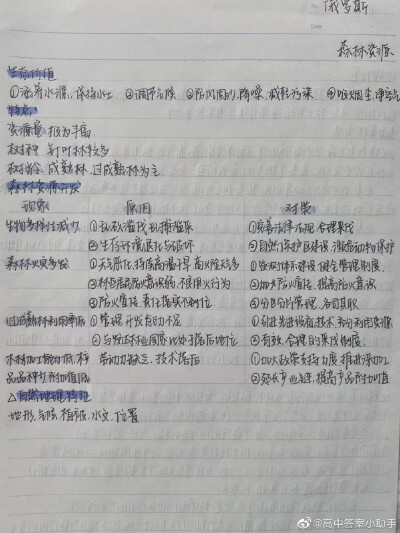 俄罗斯
森林资源
生态价值
①涵养水源,保持水土 ②调节气候 ③防风固沙,降噪,减轻污染 ④吸烟滞尘,净空气
特点
资源量:极为丰富
树种:针叶林较多
树龄:成熟林、过成熟林为主
森林资源开发
现象 原因 对策
生物多样性减少 ①乱砍滥伐,乱捕滥杀 ①完善法律法规,合理采伐
②生存环境退化与破坏 ②自然保护区建设,濒危动物保护
森林火灾多发 ①天气恶化,持续高温干旱,高火险天多 ①应对体系建设,健全管理制度
②林区居民防火意识弱,不良用火行为 ②加大防火宣传,提高防火意识
③防火宣传、责任落实不到位 ③分区分片管理,各司其职
过成熟林利用率低 ①管理、开发能力不足 ①引进先进设备、技术,充分利用资源
②与发达林业国家比处于落后地位 ②有效、合理的采伐制度
木材加工能力低,林 劳动力缺乏,技术落后 ①加大政策支持力度,推进深加工
品品种少,附加值低 ②延长产业链,提高产品附加值
△自然地理特征
地形、气候、植被、水文、位置
@高中答案小助手